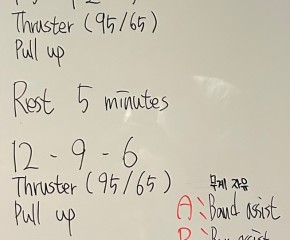 Thruster (95/65)
Pull up
Rest 5 minutes
12 - 9 - 6
Thruster (95/65)
Pull up
무게 자유
A: Band assist
B: